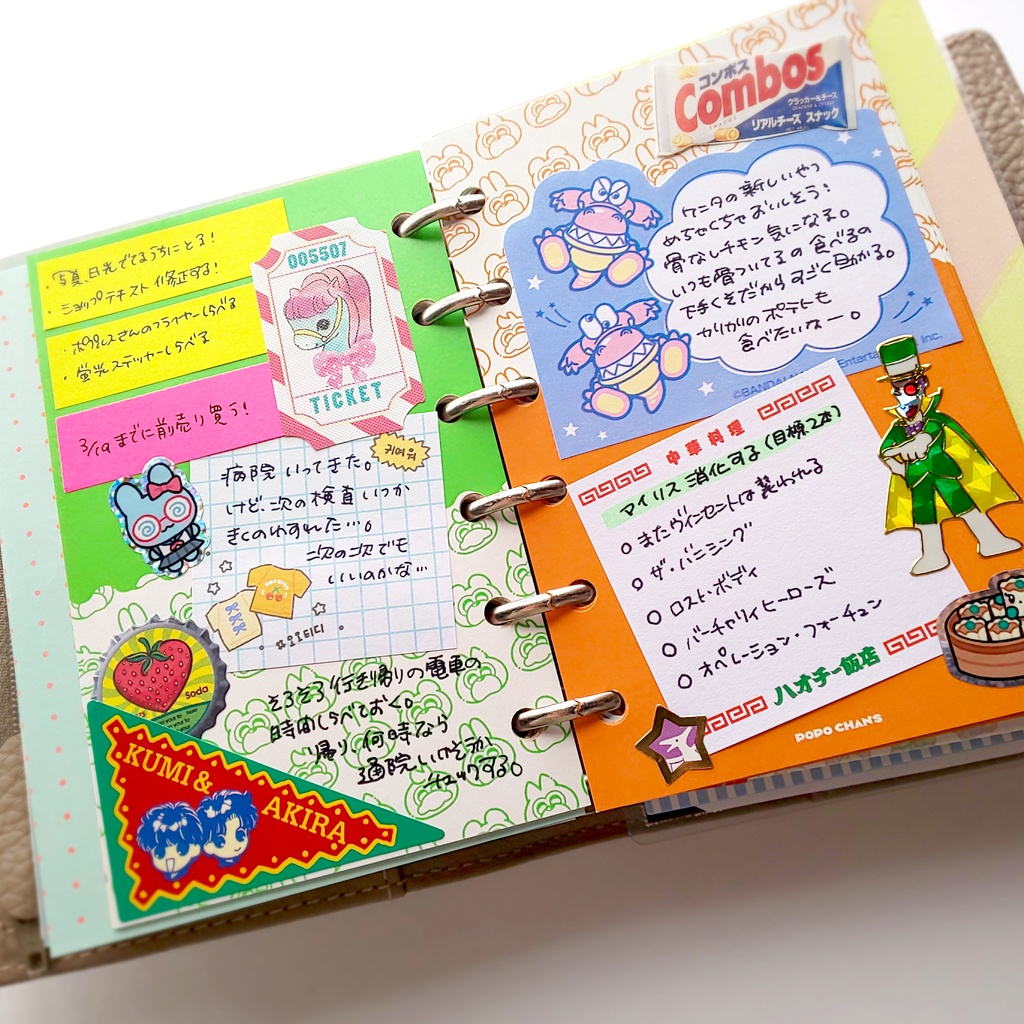 ・写真、日光でてるうちにとる!
・ショップテキスト修正する!
・ポプルスさんのフライヤーしらべる
・蛍光ステッカーしらべる
3/19までに前売り買う!
005507
TICKET
귀여워
病院いってきた。
けど、次の検査いつか
きくのわすれた…。
次の次でも
いいのかな…
KKK
Soda
そろそろ行き帰りの電車の
時間しらべておく。
帰り、何時なら
通院しいいそうか
チェックする。
KUMI &
AKIRA
コンボス
Combos
クラッカー&チーズ
リアルチーズ スナック
ケニタの新しいやつ
めちゃくちゃおいしそう!
骨なしチキン気になる。
いつも骨ついてるの食べるの
下手くそだからすごく助かる。
カリカリのポテトも
食べたいなー。
©BANDAI Entertainment Inc.
中華料理
マイリス消化する(目標2本)
○またヴィンセントは襲われる
○ザ・バニシング
○ロスト・ボディ
○バーチャリィ・ヒーローズ
○オペレーション・フォーチュン
ハオチー飯店
POPO CHAN'S